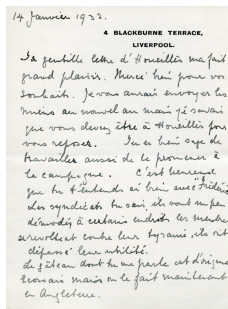 14 Janvier 1933.
4 BLACKBURNE TERRACE,
LIVERPOOL.
Ta gentille lettre d'Honeilles m'a fait
grand plaisir. Merci bien pour vos
souhaits. Je vous aurais envoyer les
miens au nouvel an mais je savais
que vous deviez être à Honeilles pour
vous reposer. Tu es bien sage de
travailler aussi de te promener à
la campagne. C'est heureux
que tu t'entends si bien avec "Frédéric"
Les syndicats tu sais, ils sont un peu
démodés à certains endroits les membres
se revoltent contre leur tyranie, ils ont
dépassé leur utilité.
Le gâteau dont tu me parle est d'origine
Ecossais mais on le fait maintenant
en Angleterre.